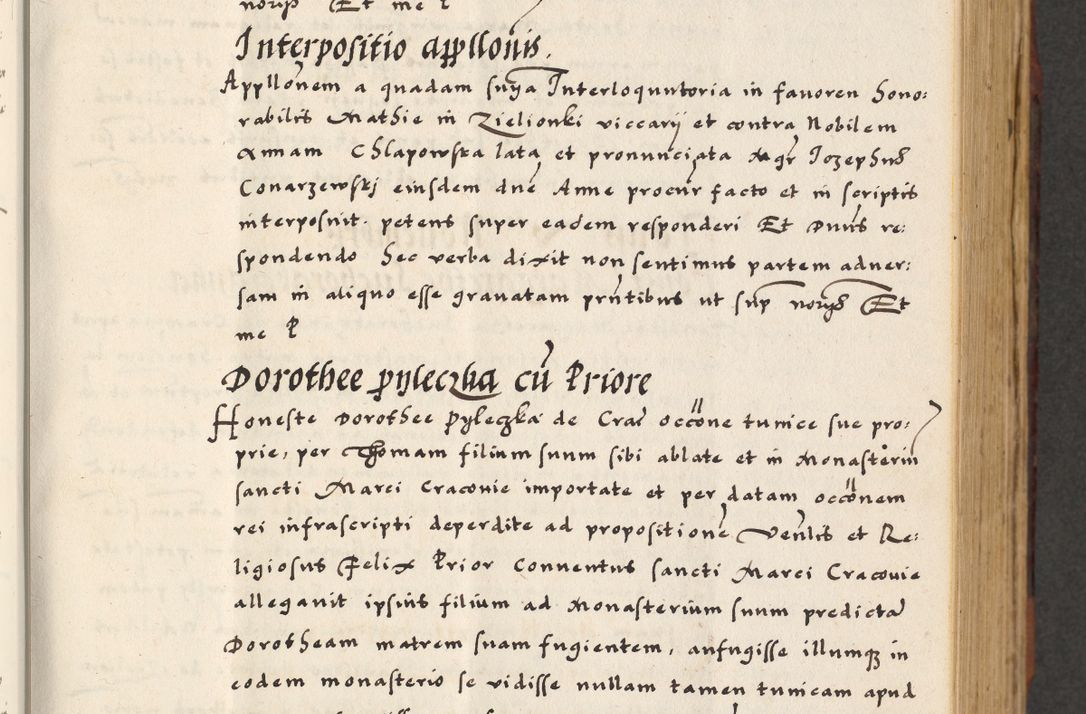 noriis Et me P
Interpositio appllonis.
Appllonem a quadam snya Interloquutoria in fauorem hono:
rabilis Mathie in Zielionki viccarij et contra Nobilem
Annam Chlapowska lata et pronunciata Mgr Iozephus
Conarzewskj eiusdem dne Anne procur facto et in scriptis
interposuit. petens super eadem responderi Et Dnus re:
spondendo hec verba dixit non sentimus partem aduer:
sam in aliquo esse grauatam prntibus ut sup noriis Et
me P
Dorothee pyleczka cu Priore
Honeste Dorothee Pyleczka de Cra occone tunice sue pro:
prie, per Thomam filium suum sibi ablate et in Monasteriu
sancti Marci Cracouie importate et per datam occonem
rei infrascripti deperdite ad propositione Venlis et Re:
ligiosus Felix Prior Conuentus sancti Marci Cracouie
allegauit ipsius filium ad Monasterium suum predicta
Dorotheam matrem suam fugientem, aufugisse illumq in
eodem monasterio se vidisse nullam tamen tunicam apud